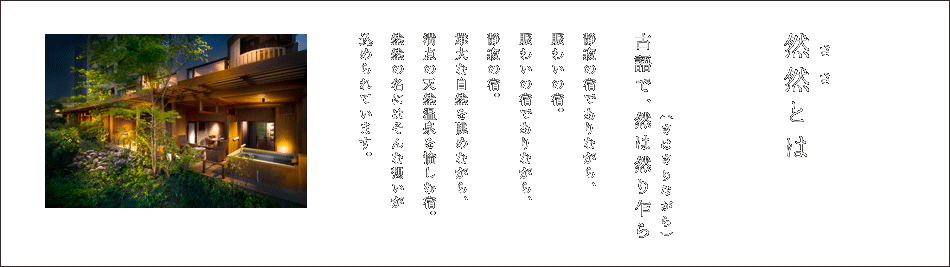 ささ
然然とは
古語で、然は然り乍ら
(さはさりながら)
静寂の宿でありながら、
賑わいの宿。
賑わいの宿でありながら、
静寂の宿。
雄大な自然を眺めながら、
満点の天然温泉を愉しむ宿。
然然の名にはそんな想いが
込められています。